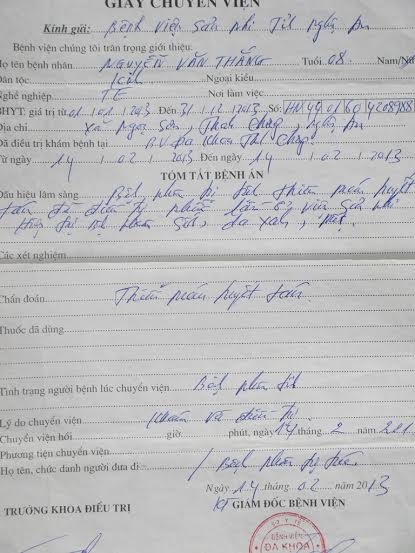 GIẤY CHUYỂN VIỆN
Kính gửi: Bệnh viện Sản nhi Tỉnh Nghệ An
Bệnh viện chúng tôi trân trọng giới thiệu:
Họ tên bệnh nhân NGUYỄN VĂN THẮNG Tuổi 08 Nam/Nữ
Dân tộc Kinh Ngoại kiều
Nghề nghiệp TE Nơi làm việc
BHYT: giá trị từ 01 / 01 / 2013 Đến 31 / 12 / 2013 Số: HN 40 4208988
Địa chỉ Xã Ngọc Sơn, Thanh Chương, Nghệ An
Đã điều trị khám bệnh tại B.V. Đa khoa Th. Chương
Từ ngày 14 / 02 / 2013 Đến ngày 14 / 02 / 2013
TÓM TẮT BỆNH ÁN
Dấu hiệu lâm sàng Bệnh nhân bị thiếu máu huyết
tán đã điều trị nhiều lần ở viện Sản nhi
Hiện tại da xanh,
Các xét nghiệm
Chẩn đoán Thiếu máu huyết tán
Thuốc đã dùng
Tình trạng người bệnh lúc chuyển viện Bệnh nhân tỉnh
Lý do chuyển viện Khám và điều trị.
Chuyển viện hồi giờ phút, ngày 14 tháng 2 năm 201
Phương tiện chuyển viện
Họ tên, chức danh người đưa đi: Bệnh nhân tự túc
Ngày 14 tháng 02 năm 2013
TRƯỞNG KHOA ĐIỀU TRỊ KT GIÁM ĐỐC BỆNH VIỆN
SỞ Y TẾ
BỆNH VIỆN
ĐA KHOA